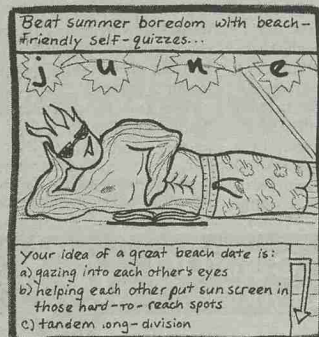 Beat summer boredom with beach-
friendly self-quizzes...
june
Your idea of a great beach date is:
a) gazing into each other's eyes
b) helping each other put sun screen in
those hard-to-reach spots
c) tandem long-division